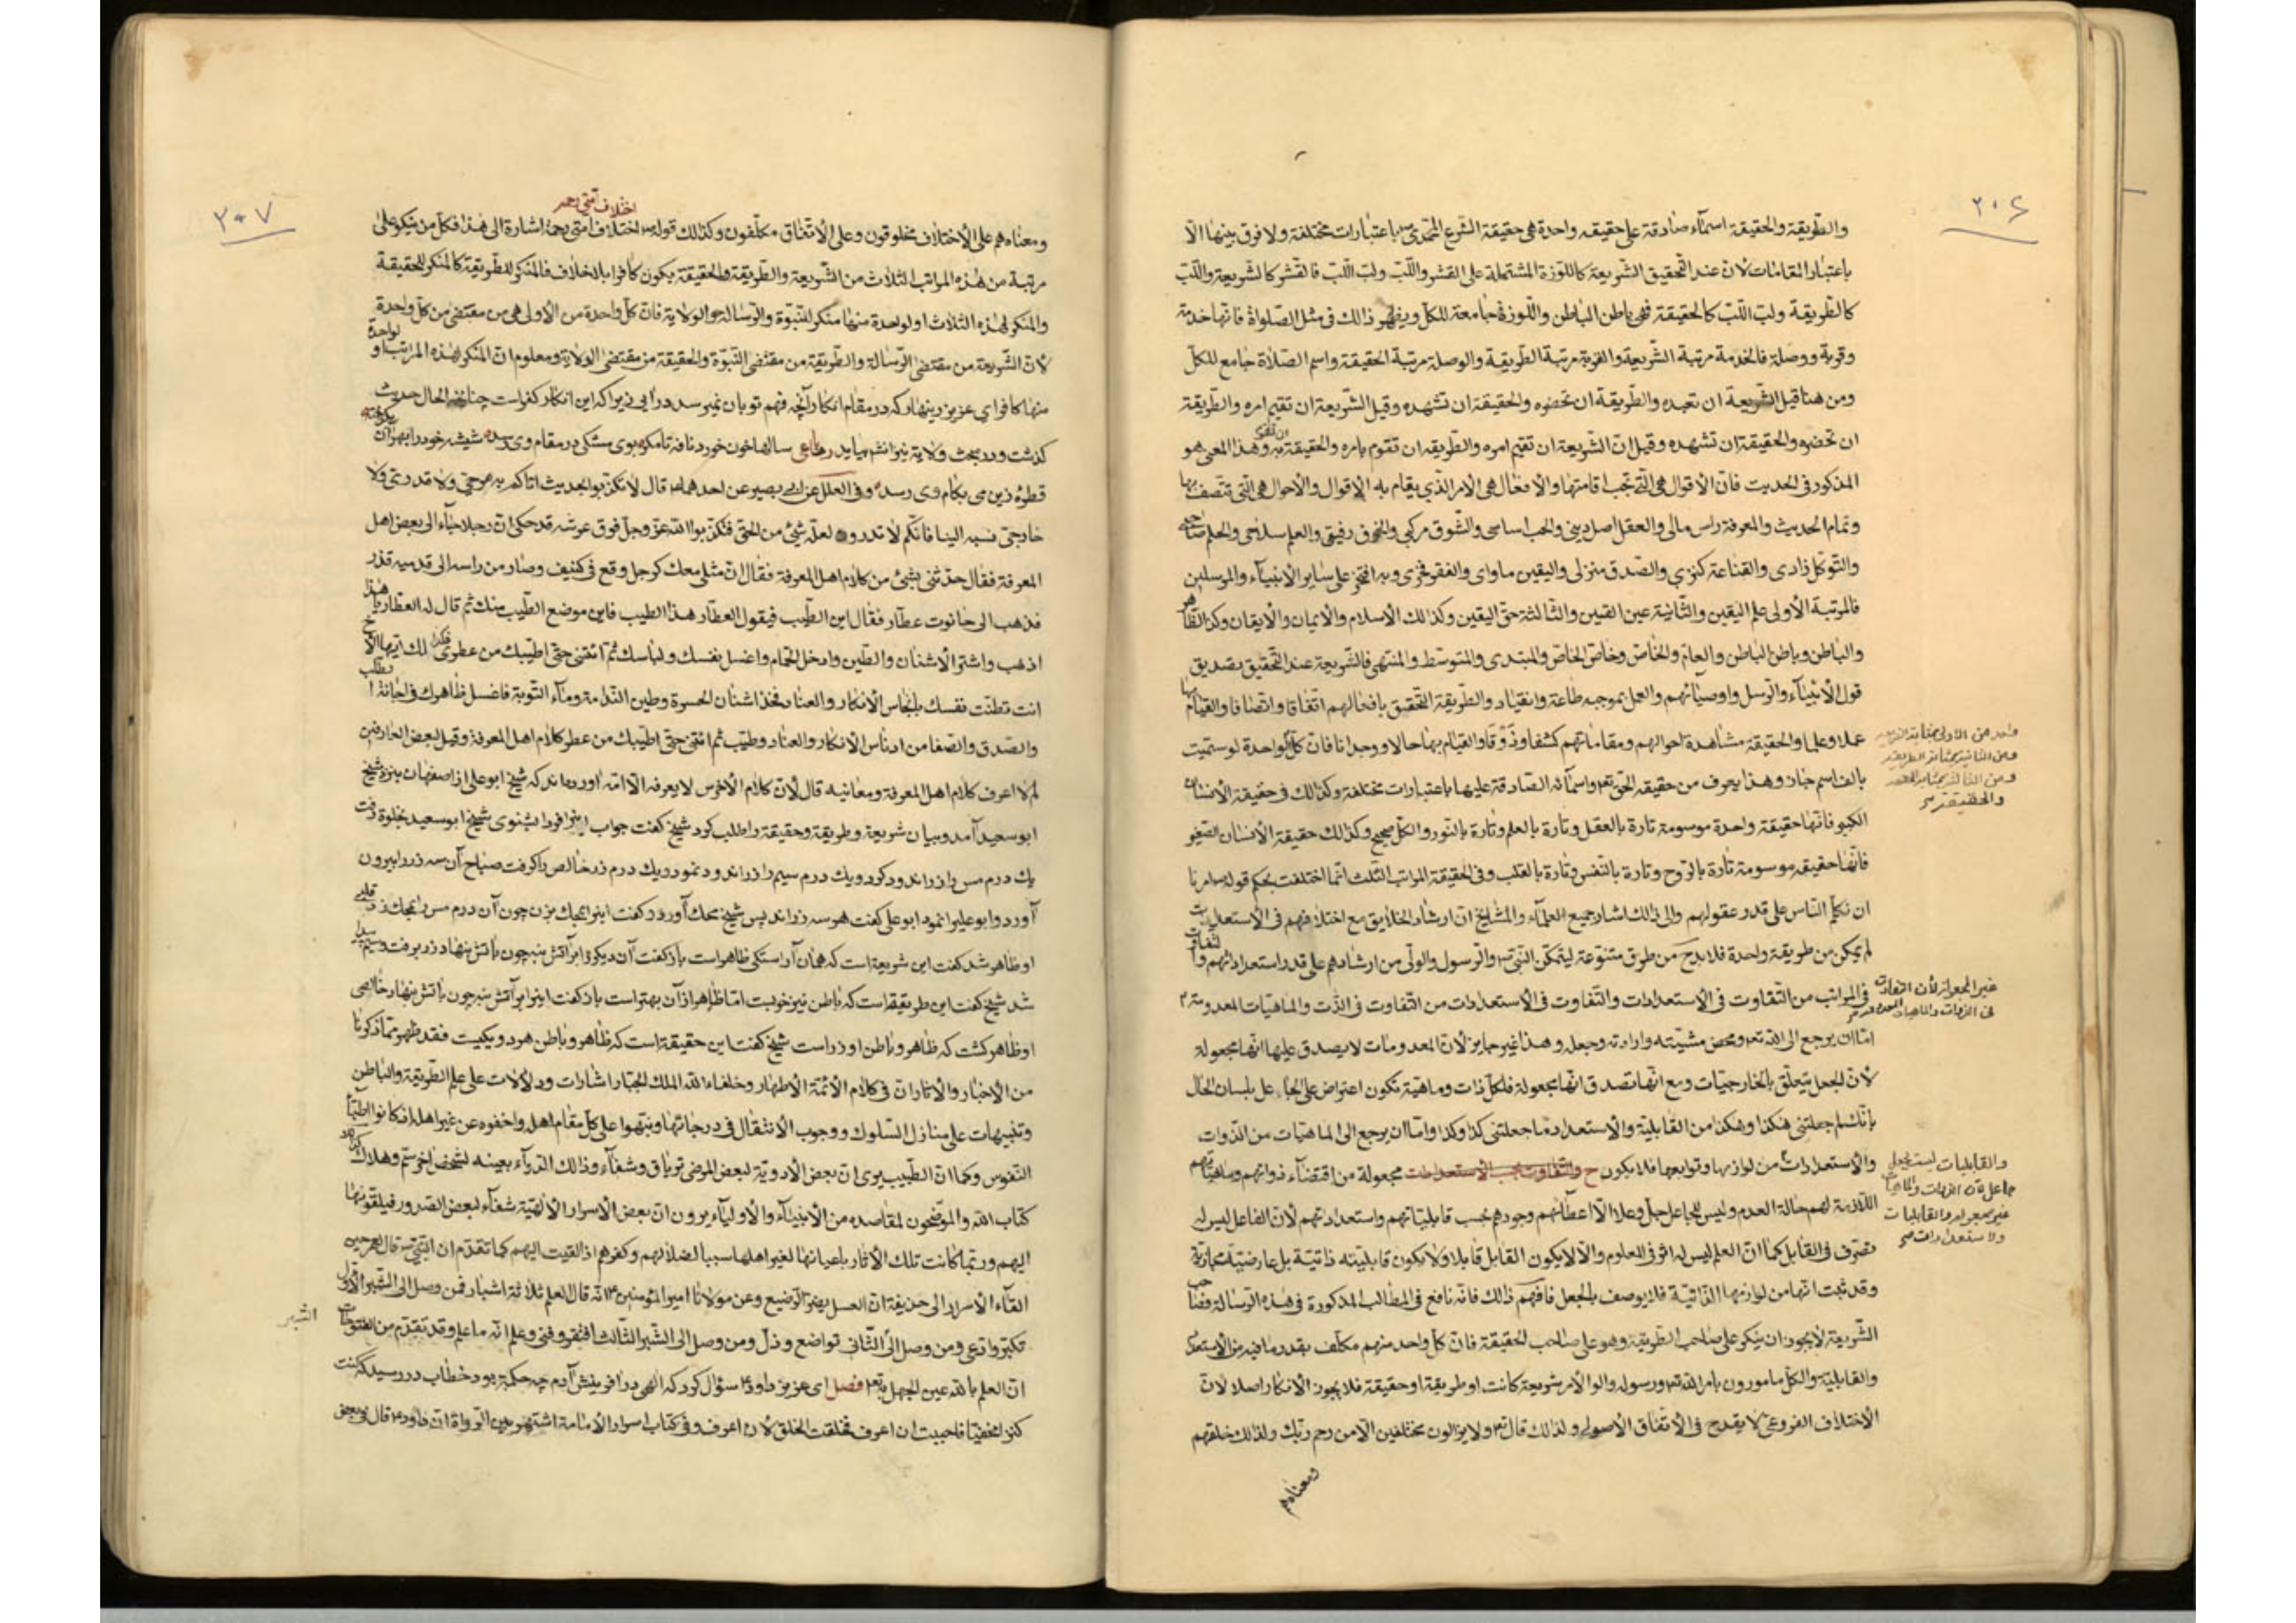 ٢٠٦
والطريقة والحقيقة اسمآء صادقة على حقيقه واحدة هى حقيقة الشرع المحمدى باعتبارات مختلفة ولا فرق بينها الا
باعتبار المقامات لان عند التحقيق الشريعة كاللوزة المشتملة على القشر واللب ولب اللب فالقشر كالشريعة واللب
كالطريقة ولب اللب كالحقيقة فهى باطن الباطن واللوزة جامعة للكل ويظهر ذالك فى مثل الصلواة فانها خدمة
وقربة ووصلة فالخدمة مرتبة الشريعة والقربة مرتبة الطريقة والوصلة مرتبة الحقيقة واسم الصلاة جامع للكل
ومن هنا قيل الشريعة ان تعبده والطريقة ان تحضره والحقيقة ان تشهده وقيل الشريعة ان تقيم امره والطريقة
ان تحضره والحقيقة ان تشهده وقيل ان الشريعة ان تقيم امره والطريقه ان تقوم بامره والحقيقة ان تقوم به وهذا المعى هو
المذكور فى الحديث فان الاقوال هى التى تجب اقامتها والافعال هى الامر الذي يقام به الاقوال والأحوال هى التى تتصف بها
وتمام الحديث والمعرفة راس مالى والعقل اصل دينى والحب اساسى والشوق مركبى والخوف رفيقى والعلم سلاحى والحلم صاحبى
والتوكل زادى والقناعة كنزي والصدق منزلى واليقين ماواى والفقر فخرى وبه افتخر على ساير الانبيآء والمرسلين
فالمرتبة الأولى علم اليقين والثانية عين اليقين والثالثة حق اليقين وكذالك الاسلام والايمان والأيقان وكذا الظاهر
والباطن وباطن الباطن والعام والخاص وخاص الخاص والمبتدى والمتوسط والمنتهى فالشريعة عند التحقيق تصديق
قول الأنبيآء والرسل واوصيائهم والعمل بموجبه طاعة وانقياد والطريقة التحقيق بافعالهم اتفاقا واتصافا والقيام بها
عملا وعلما والحقيقة مشاهدة احوالهم ومقاماتهم كشفا وذوقا والقيام بها حالا ووجدانا فان كل واحدة لو سميت
بالف اسم جاز وهذا يعرف من حقيقه الحق تع واسمائه الصادقة عليها باعتبارات مختلفة وكذالك فى حقيقة الأنسان
الكبير فانها حقيقة واحدة موسومة تارة بالعقل وتارة بالعلم وتارة بالنور والكل صحيح وكذالك حقيقة الأنسان الصغير
فانها حقيقه موسومة تارة بالروح وتارة بالنفس وتارة بالقلب وفى الحقيقة المراتب الثلث انما اختلفت بحكم قوله امرنا
ان نكلم الناس على قدر عقولهم والى ذالك اشار جميع العلمآء والمشايخ ان ارشاد الخلايق مع اختلافهم فى الأستعدادات
لم يمكن من طريقة واحدة فلابد من طرق متنوعة ليتمكن النبى والرسول والولى من ارشادهم على قدر استعداداتهم والتفاوت
فى المراتب من التفاوت فى الأستعدادات والتفاوت فى الأستعدادات من التفاوت فى الذت والماهيات المعدومة
اما ان يرجع الى الله تع ومحض مشيته وارادته وجعله وهذا غير جايز لان المعدومات لا يصدق عليها انها مجعولة
لأن الجعل يتعلق بالخارجيات ومع انها تصدق انها مجعولة فلكل ذات وماهية تكون اعتراض على الجاعل بلسان الحال
بانك لم جعلتنى هكذا وهكذا من القابلية والأستعداد وما جعلتنى كذا وكذا واما ان يرجع الى الماهيات من الذوات
والأستعدادات من لوازمها وتوابعها فلا يكون ح والتفاوت بحسب الأستعدادات مجعولة من اقتضآء ذواتهم وماهياتهم
اللازمة لهم حالة العدم وليس للجاعل جل وعلا الا اعطائهم وجودهم بحسب قابلياتهم واستعداداتهم لأن الفاعل ليس له
تصرف فى القابل كما ان العلم ليس له اثر فى المعلوم والا لا يكون القابل قابلا ولا يكون قابليته ذاتية بل عارضية مجازية
وقد ثبت انها من لوازمها الذاتية فلا يوصف بالجعل فافهم ذالك فانه نافع فى المطالب المذكورة فى هذه الرسالة فصاحب
الشريعة لا يجوز ان ينكر على صاحب الطريقة وهو على صاحب الحقيقة فان كل واحد منهم مكلف بقدر ما فيه من الاستعداد
والقابلية والكل مامورون بامر الله تع ورسوله واولوالامر شريعة كانت او طريقة او حقيقة فلا يجوز الأنكار اصلا لان
الأختلاف الفروعى لا يقدح فى الأتفاق الأصولى ولذالك قال تع ولا يزالون مختلفين الا من رحم ربك ولذالك خلقهم
ومعناه هم
ومن الثانية بمثابة الطريقة
والحقيقة
غير المجعولة لأن التفاوت
فى الذوات والماهيات المعدومة
والقابليات ليست بجعل
جاعل لان الذوات والماهيات
غير مجعوله والقابليات
والاستعدادات
٢٠٧
اختلاف امتى رحمه
ومعناه هم على الأختلاف مخلوقون وعلى الأتفاق مكلفون وكذالك قوله اختلاف امتى رحمة اشارة الى هذا فكل من ينكر على
مرتبة من هذه المراتب الثلاث من الشريعة والطريقة والحقيقة يكون كافرا بلا خلاف فالمنكر للطريقة كالمنكر للحقيقة
والمنكر لهذه الثلاث او لواحدة منها منكر للنبوة والرسالة والولاية فان كل واحدة من الأولى هى من مقتضى من كل واحدة
لأن الشريعة من مقتضى الرسالة والطريقة من مقتضى النبوة والحقيقة من مقتضى الولاية ومعلوم ان المنكر لهذه المراتب او لواحدة
منها كافر اي عزيز زينهار كه در مقام انكار آنچه فهم تو بان نميرسد در آيى زيرا كه اين انكار كفر است چنانچه الحال حديث
كذشت ودر بحث ولاية نيز انشا ميايد رباعى سالها خون خورد نافه تا مكر بوى مشكى در مقام وى رسد شيشه خود را بهر آن
قطرۀ زين مى بكام وى رسد وفى العلل عن ابى بصير عن احدهما قال لا تكذبوا بحديث اتاكم به مرجى ولا قدرى ولا
خارجى نسبه الينا فانكم لا تدرون لعله شئ من الحق فتكذبوا الله عز وجل فوق عرشه قد حكى ان رجلا جآء الى بعض اهل
المعرفة فقال حدثنى بشئ من كلام اهل المعرفة فقال ان مثلى معك كرجل وقع فى كنيف وصار من راسه الى قدميه قذر
فذهب الى حانوت عطار فقال اين الطيب فيقول العطار هذا الطيب فاين موضع الطيب منك ثم قال له العطار يا هذا
اذهب واشتر الأشنان والطين وادخل الحمام واغسل نفسك ولباسك ثم ائتنى حتى اطيبك من عطرى فكذا لك ايها الأخ
انت تطلت نفسك بانجاس الأنكار والعناد فخذ اشنان الحسرة وطين الندامة ومآء التوبة فاغسل ظاهرك فى اجانة
والصدق والصفا من ادناس الأنكار والعناد وطيب ثم ائتنى حتى اطيبك من عطر كلام اهل المعرفة وقيل بعض العارفين
لم لا اعرف كلام اهل المعرفة ومعانيه قال لأن كلام الأخرس لا يعرفه الا امه آورده اند كه شيخ ابو على از اصفهان بنزد شيخ
ابو سعيد آمد وبيان شريعة وطريقة وحقيقة را طلب كرد شيخ كفت جواب اينرا فردا بشنوى شيخ ابو سعيد بخلوة رفت
يك درم مس را زر اندود كرد ويك درم سيم را زر اندود نمود ويك درم زر خالص را كرفت صباح آن سه زر را بيرون
آورد وابو عليرا نمود ابو على كفت هر سه زراند پس شيخ محك آورد كفت اينرا بمحك بزن چون آن درم مس را بمحك زد قلبى
او ظاهر شد كفت اين شريعة است كه همان آراستكى ظاهر است باز كفت آن ديكر را بر آتش بنه چون باتش بنهاد زر برفت وسيم پيدا
شد شيخ كفت اين طريقة است كه باطن نيز خوبست اما ظاهر از آن بهتر است باز كفت اينرا بر آتش بنه چون باتش بنهاد خالصى
او ظاهر كشت كه ظاهر وباطن او زر است شيخ كفت اين حقيقة است كه ظاهر وباطن هر دو يكيست فقد ظهر مما ذكرنا
من الأخبار والآثار ان فى كلام الأئمة الأطهار وخلفاء الله الملك الجبار اشارات ودلالات على علم الطريقة والباطن
وتنبيهات على منازل السلوك ووجوب الأنتقال فى درجاتها ونبهوا على كل مقام اهله واخفوه عن غير اهله اذ كانوا اطباء
النفوس وكما ان الطبيب يرى ان بعض الأدوية لبعض المرضى ترياق وشفآء وذالك الدوآء بعينه لشخص آخر سم وهلاك كذالك
كتاب الله والموضحون لمقاصده من الأنبيآء والأوليآء يرون ان بعض الأسرار الألهية شفآء لبعض الصدور فيلقونها
اليهم وربما كانت تلك الآثار باعيانها لغير اهلها سببا لضلالهم وكفرهم اذ القيت اليهم كما تقدم ان النبى قال
القآء الأسرار الى حذيفة ان العسل يضر الرضيع وعن مولانا امير المؤمنين انه قال العلم ثلاثة اشبار فمن وصل الى الشبر الأول
تكبر وادعى ومن وصل الى الثانى تواضع وذل ومن وصل الى الشبر الثالث افتقر وفنى وعلم انه ما علم وقد تقدم من الفتوحات
ان العلم بالله عين الجهل به تع فصل اى عزيز داود سؤال كرد كه الهى در آفرينش آدم چه حكمة بود خطاب در رسيد كه كنت
كنزا مخفيا فاحببت ان اعرف فخلقت الخلق لأن اعرف وفى كتاب اسرار الأمامة اشتهر بين الرواة ان داود قال فى بعض
الشبر